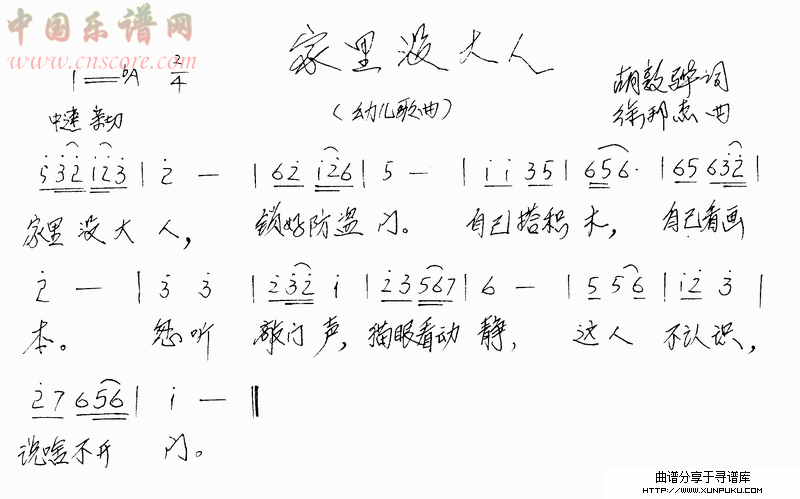 中国乐谱网
www.cnscore.com
家里没大人
1=bA 2/4
(幼儿歌曲)
胡敦骅词
中速 亲切
徐邦杰曲
5 3 2 1 2 3 | 2 — | 6 2 1 2 6 | 5 — | 1 1 3 5 | 6 5 6 · | 6 5 6 3 2 |
家里没大人, 锁好防盗门。 自己搭积木, 自己看画
2 — | 3 3 | 2 3 2 1 | 2 3 5 6 7 | 6 — | 5 5 6 | 1 2 3 |
本。 忽听敲门声, 猫眼看动静, 这人不认识,
2 7 6 5 6 | 1 — ‖
说啥不开门。
曲谱分享于寻谱库
HTTP://WWW.XUNPUKU.COM